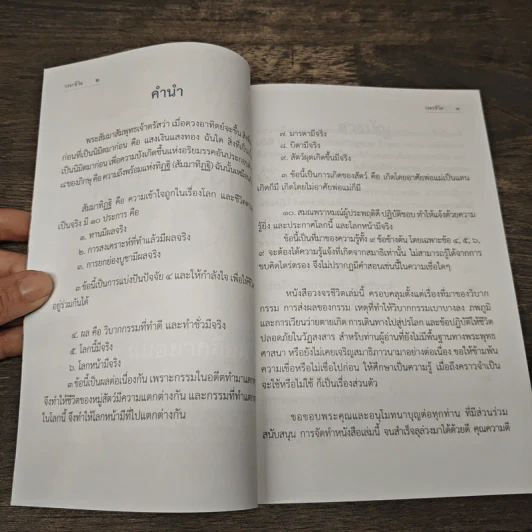 วงจรชีวิต ๒
คำนำ
พระสัมมาสัมพุทธเจ้าตรัสว่า เมื่อดวงอาทิตย์จะขึ้น
ก่อนที่เป็นนิมิตมาก่อน คือ แสงเงินแสงทอง ฉันใด สิ่งที่เป็น
เป็นนิมิตมาก่อน เพื่อความบังเกิดขึ้นแห่งอริยมรรคอันประกอบ
๘ ของภิกษุ คือ ความถึงพร้อมแห่งทิฏฐิ (สัมมาทิฏฐิ) ฉันนั้นเหมือน
สัมมาทิฏฐิ คือ ความเข้าใจถูกในเรื่องโลก และชีวิต
เป็นจริง มี ๑๐ ประการ คือ
๑. ทานมีผลจริง
๒. การสงเคราะห์ที่ทำแล้วมีผลจริง
๓. การยกย่องบูชามีผลจริง
๓ ข้อนี้เป็นการแบ่งปันปัจจัย ๔ และให้กำลังใจ เพื่อให้
อยู่ร่วมกันได้
๔. ผล คือ วิบากกรรมที่ทำดี และทำชั่วมีจริง
๕. โลกนี้มีจริง
๖. โลกหน้ามีจริง
๓ ข้อนี้เป็นผลต่อเนื่องกัน เพราะกรรมในอดีตทำมา
จึงทำให้ชีวิตของหมู่สัตว์มีความแตกต่างกัน และกรรมที่ทำ
ในโลกนี้ จึงทำให้โลกหน้ามีที่ไปแตกต่างกัน
วงจรชีวิต ๓
๗. มารดามีจริง
๘. บิดามีจริง
๙. สัตว์ผุดเกิดขึ้นมีจริง
๓ ข้อนี้เป็นการเกิดของสัตว์ คือ เกิดโดยอาศัยพ่อแม่เป็นแดน
เกิดก็มี เกิดโดยไม่อาศัยพ่อแม่ก็มี
๑๐. สมณพราหมณ์ผู้ประพฤติดี ปฏิบัติชอบ ทำให้แจ้งด้วยความ
รู้ยิ่ง และประกาศโลกนี้ และโลกหน้ามีจริง
ข้อนี้เป็นที่มาของความรู้ทั้ง ๙ ข้อข้างต้น โดยเฉพาะข้อ ๔, ๕, ๖,
๙ จะต้องได้ความรู้แจ้งที่เกิดจากสมาธิเท่านั้น ไม่สามารถรู้ได้จากการ
ขบคิดไตร่ตรอง จึงไม่ปรากฏมีคำสอนเช่นนี้ในความเชื่อใดๆ
หนังสือวงจรชีวิตเล่มนี้ ครอบคลุมตั้งแต่เรื่องที่มาของวิบาก
กรรม การส่งผลของกรรม เหตุที่ทำให้วิบากกรรมเบาบางลง ภพภูมิ
และการเวียนว่ายตายเกิด การเดินทางไปสู่ปรโลก และข้อปฏิบัติให้ชีวิต
ปลอดภัยในวัฏสงสาร สำหรับท่านผู้อ่านที่ยังไม่มีพื้นฐานทางพระพุทธ
ศาสนา หรือยังไม่เคยเจริญสมาธิภาวนามาอย่างต่อเนื่อง ขอให้ข้ามพ้น
ความเชื่อหรือไม่เชื่อไปก่อน ให้ศึกษาเป็นความรู้ เมื่อถึงคราวจำเป็น
จะใช้หรือไม่ใช้ ก็เป็นเรื่องส่วนตัว
ขอขอบพระคุณและอนุโมทนาบุญต่อทุกท่าน ที่มีส่วนร่วม
สนับสนุน การจัดทำหนังสือเล่มนี้ จนสำเร็จลุล่วงมาได้ด้วยดี คุณความดี